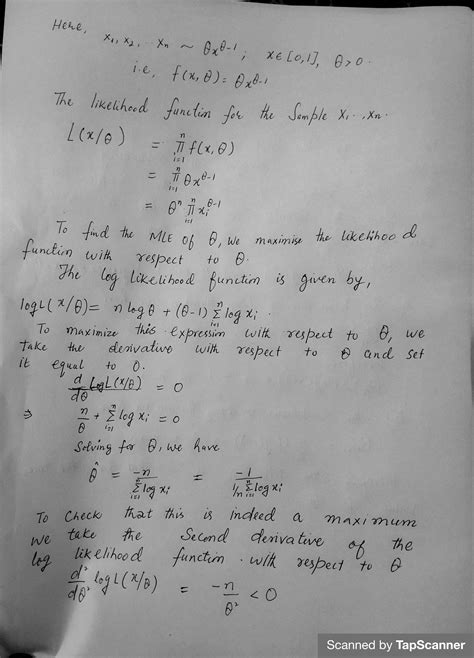 Here, x₁, x₂, .. xₙ ~ θx^(θ-1) ; x∈[0,1], θ>0.
i.e, f(x,θ) = θx^(θ-1)
The likelihood function for the Sample X₁..,Xₙ.
L(x/θ) = ∏_{i=1}^{n} f(x,θ)
= ∏_{i=1}^{n} θx^(θ-1)
= θ^n ∏_{i=1}^{n} x_i^(θ-1)
To find the MLE of θ, we maximise the likelihood
function with respect to θ.
The log likelihood function is given by,
log L(x/θ) = n log θ + (θ-1) Σ_{i=1}^{n} log x_i.
To maximize this expression with respect to θ, we
take the derivative with respect to θ and set
it equal to 0.
d/dθ Log L(x/θ) = 0
⇒ n/θ + Σ_{i=1}^{n} log x_i = 0
Solving for θ, we have
θ̂ = -n / Σ_{i=1}^{n} log x_i = -1 / (1/n Σ_{i=1}^{n} log x_i)
To Check that this is indeed a maximum
we take the Second derivative of the
log likelihood function with respect to θ
d²/dθ² log L(x/θ) = -n/θ² < 0
Scanned by TapScanner